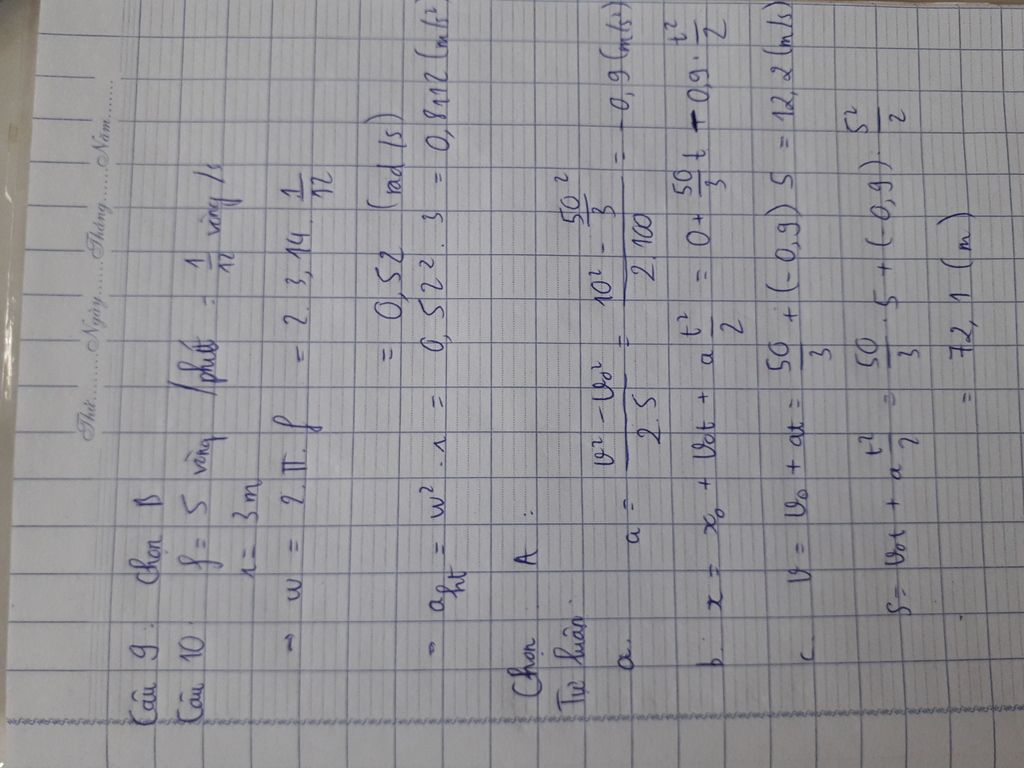 Thứ.........Ngày.......Tháng.......Năm..........
Câu 9 : Chọn B
Câu 10 : f = 5 vòng /phút = 1/12 vòng /s
r = 3m
→ w = 2.π.f = 2.3,14.1/12
= 0,52 (rad /s)
→ aht = w².r = 0,52².3 = 0,8112 (m/s²)
Chọn A .
Tự luận.
a. a = (v² - v₀²)/(2.S) = (10² - 50/3²)/(2.100) = -0,9 (m/s)
b. x = x₀ + v₀t + a t²/2 = 0 + 50/3 t - 0,9.t²/2
c. v = v₀ + at = 50/3 + (-0,9) 5 = 12,2 (m/s)
S = v₀t + a t²/2 = 50/3 .5 + (-0,9).5²/2
= 72,1 (m)